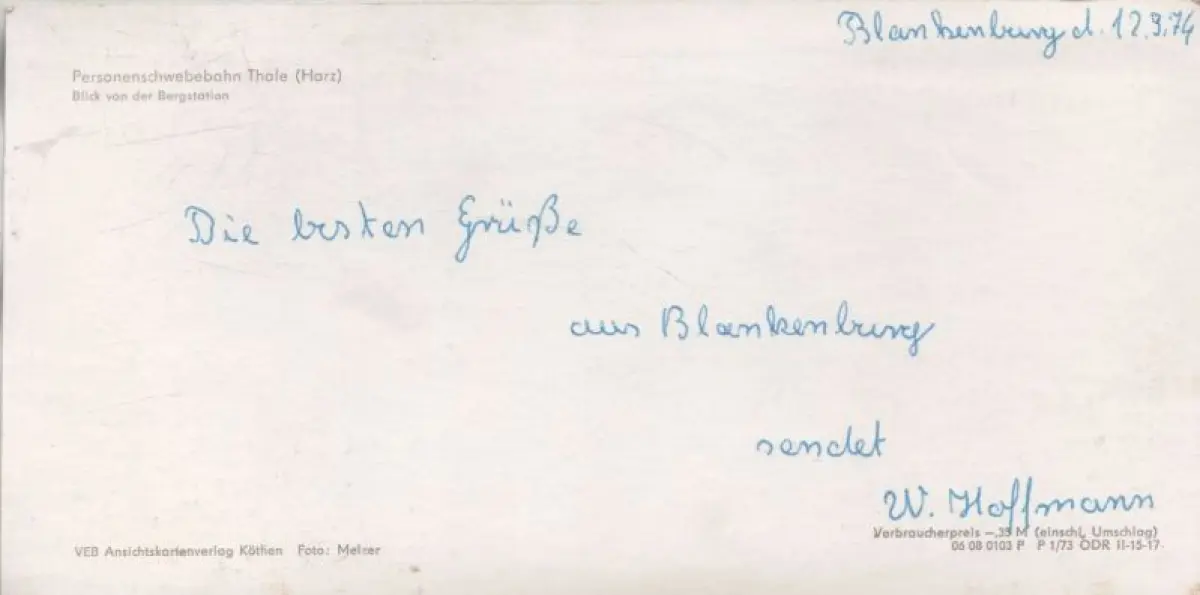 Blankenburg d. 12.9.74
Personenschwebebahn Thale (Harz)
Blick von der Bergstation
Die besten Grüße
aus Blankenburg
sendet
W. Hoffmann
Verbraucherpreis –,35 M (einschl. Umschlag)
VEB Ansichtskartenverlag Köthen Foto: Melzer
06 08 0103 P P 1/73 DDR II-15-17